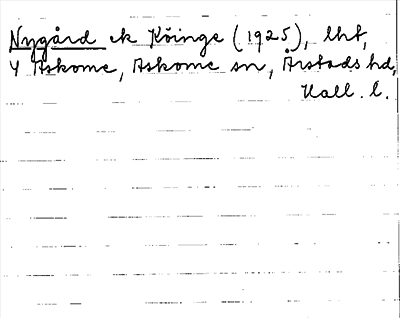 Nygård ek Köinge (1925), lht,
Y Askome, Askome sn, Årstads hd,
Hall. l.